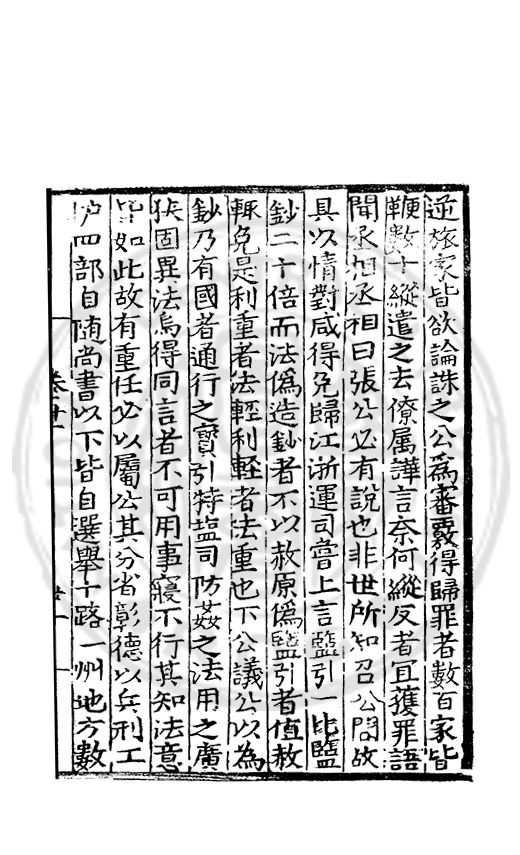 逆旅家皆欲論誅之公爲審覈得歸罪者數百家皆
鞭數十縱遣之去僚属譁言奈何縱反者冝獲罪語
聞丞相丞相曰張公必有說也非世所知召公問故
具以情對咸得免歸江浙運司嘗上言鹽引一比鹽
鈔二十倍而法僞造鈔者不以赦原僞鹽引者值赦
輙免是利重者法輕利軽者法重也下公議公以為
鈔乃有國者通行之寳引特塩司防姦之法用之廣
狹固異法烏得同言者不可用事寢不行其知法意
皆如此故有重任必以屬公其分省彰德以兵刑工
四部自随尚書以下皆自選舉十路一州地方數
卷廿一